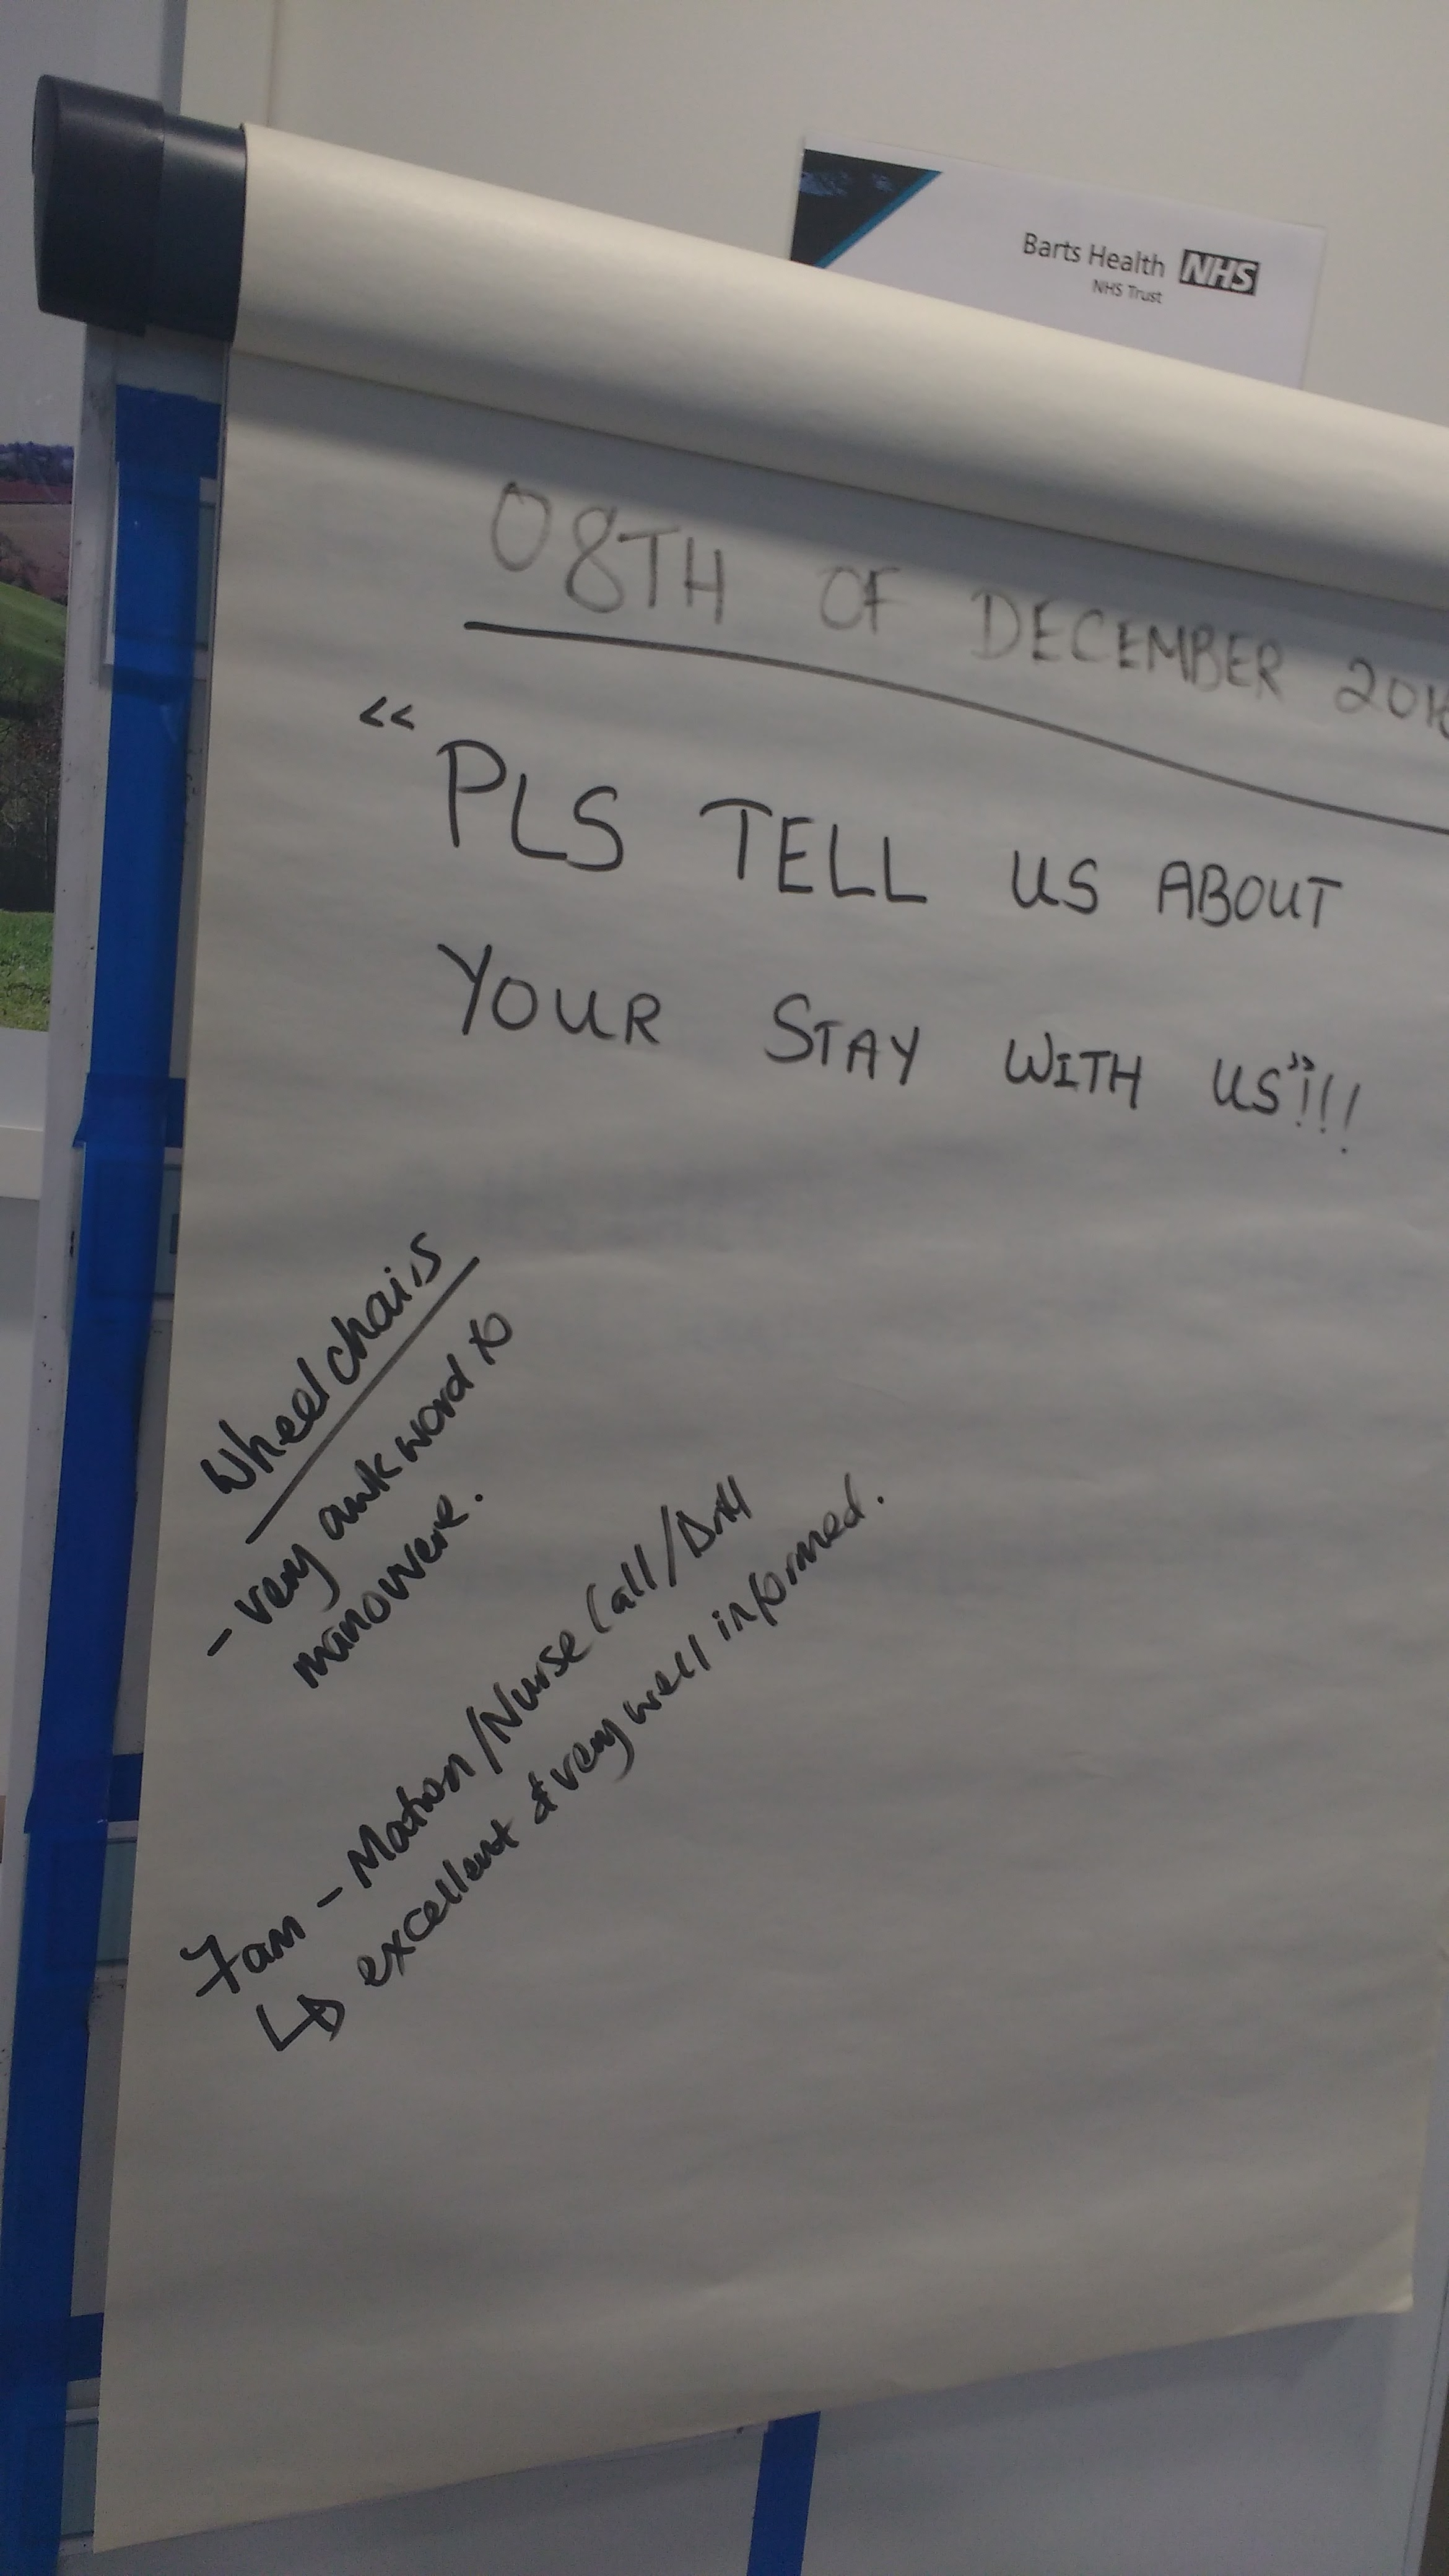 Barts Health NHS
NHS Trust
08TH OF DECEMBER
"PLS TELL US ABOUT
YOUR STAY WITH US"!!!
Wheelchairs
- very awkword to
manovere.
7am - Matron/Nurse Call/Drill
↳ excellent & very well informed.